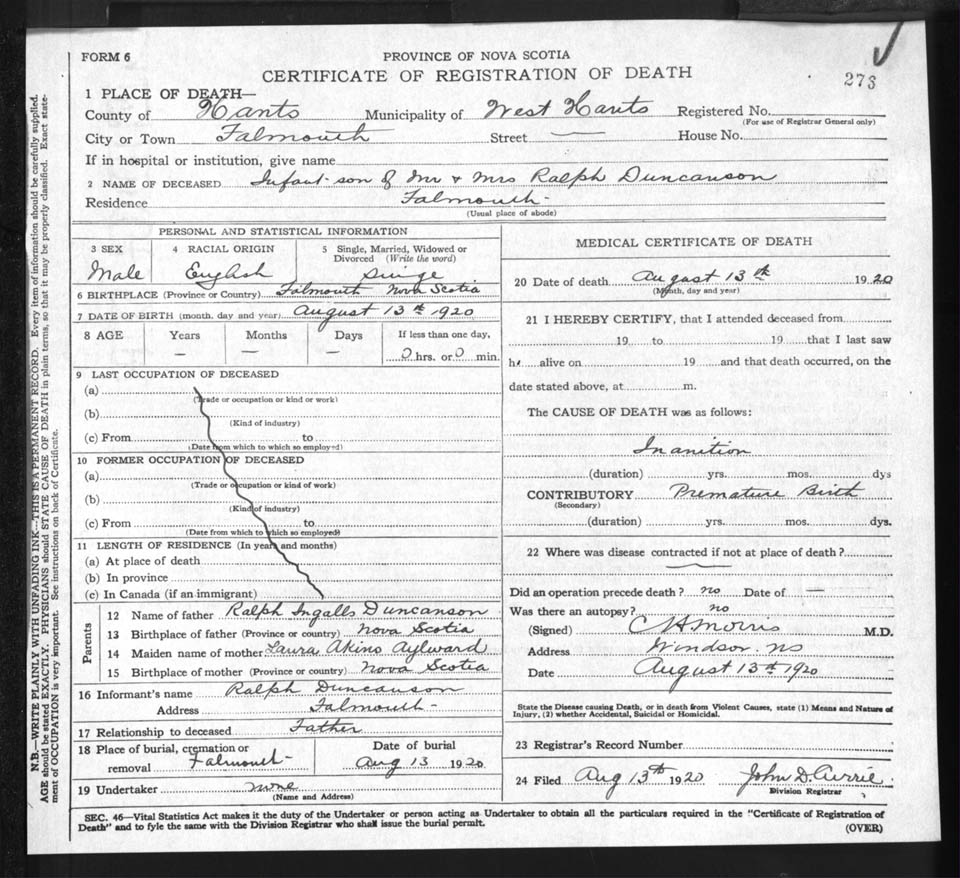 FORM 6
PROVINCE OF NOVA SCOTIA
CERTIFICATE OF REGISTRATION OF DEATH
273
1 PLACE OF DEATH—
County of Hants Municipality of West Hants Registered No.
(For use of Registrar General only)
City or Town Falmouth Street — House No.
If in hospital or institution, give name
2 NAME OF DECEASED Infant son of Mr & Mrs Ralph Duncanson
Residence Falmouth -
(Usual place of abode)
PERSONAL AND STATISTICAL INFORMATION
3 SEX 4 RACIAL ORIGIN 5 Single, Married, Widowed or
Divorced (Write the word)
Male English Singe
6 BIRTHPLACE (Province or Country) Falmouth Nova Scotia
7 DATE OF BIRTH (month, day and year) August 13th 1920
8 AGE Years Months Days If less than one day,
— — — 0 hrs. or 0 min.
9 LAST OCCUPATION OF DECEASED
(a)
(Trade or occupation or kind or work)
(b)
(Kind of industry)
(c) From to
(Date from which to which so employed)
10 FORMER OCCUPATION OF DECEASED
(a)
(Trade or occupation or kind of work)
(b)
(Kind of industry)
(c) From to
(Date from which to which so employed)
11 LENGTH OF RESIDENCE (In years and months)
(a) At place of death
(b) In province
(c) In Canada (if an immigrant)
Parents
12 Name of father Ralph Ingalls Duncanson
13 Birthplace of father (Province or country) Nova Scotia
14 Maiden name of mother Laura Akins Aylward
15 Birthplace of mother (Province or country) Nova Scotia
16 Informant's name Ralph Duncanson
Address Falmouth -
17 Relationship to deceased Father
18 Place of burial, cremation or Date of burial
removal Falmouth - Aug 13 1920
19 Undertaker none
(Name and Address)
MEDICAL CERTIFICATE OF DEATH
20 Date of death August 13th 1920
(Month, day and year)
21 I HEREBY CERTIFY, that I attended deceased from
19 to 19 that I last saw
h alive on 19 and that death occurred, on the
date stated above, at m.
The CAUSE OF DEATH was as follows:
Inanition
(duration) yrs. mos. dys
CONTRIBUTORY Premature Birth
(Secondary)
(duration) yrs. mos. dys.
22 Where was disease contracted if not at place of death?
Did an operation precede death? no Date of —
Was there an autopsy? no
(Signed) CH Morris M.D.
Address Windsor. NS
Date August 13th 1920
State the Disease causing Death, or in death from Violent Causes, state (1) Means and Nature of
Injury, (2) whether Accidental, Suicidal or Homicidal.
23 Registrar's Record Number
24 Filed Aug 13th 1920 John D. Currie
Division Registrar
SEC. 46—Vital Statistics Act makes it the duty of the Undertaker or person acting as Undertaker to obtain all the particulars required in the "Certificate of Registration of
Death" and to fyle the same with the Division Registrar who shall issue the burial permit.
(OVER)
N.B.—WRITE PLAINLY WITH UNFADING INK—THIS IS A PERMANENT RECORD. Every item of information should be carefully supplied.
AGE should be stated EXACTLY. PHYSICIANS should STATE CAUSE OF DEATH in plain terms, so that it may be properly classified. Exact state-
ment of OCCUPATION is very important. See instructions on back of Certificate.